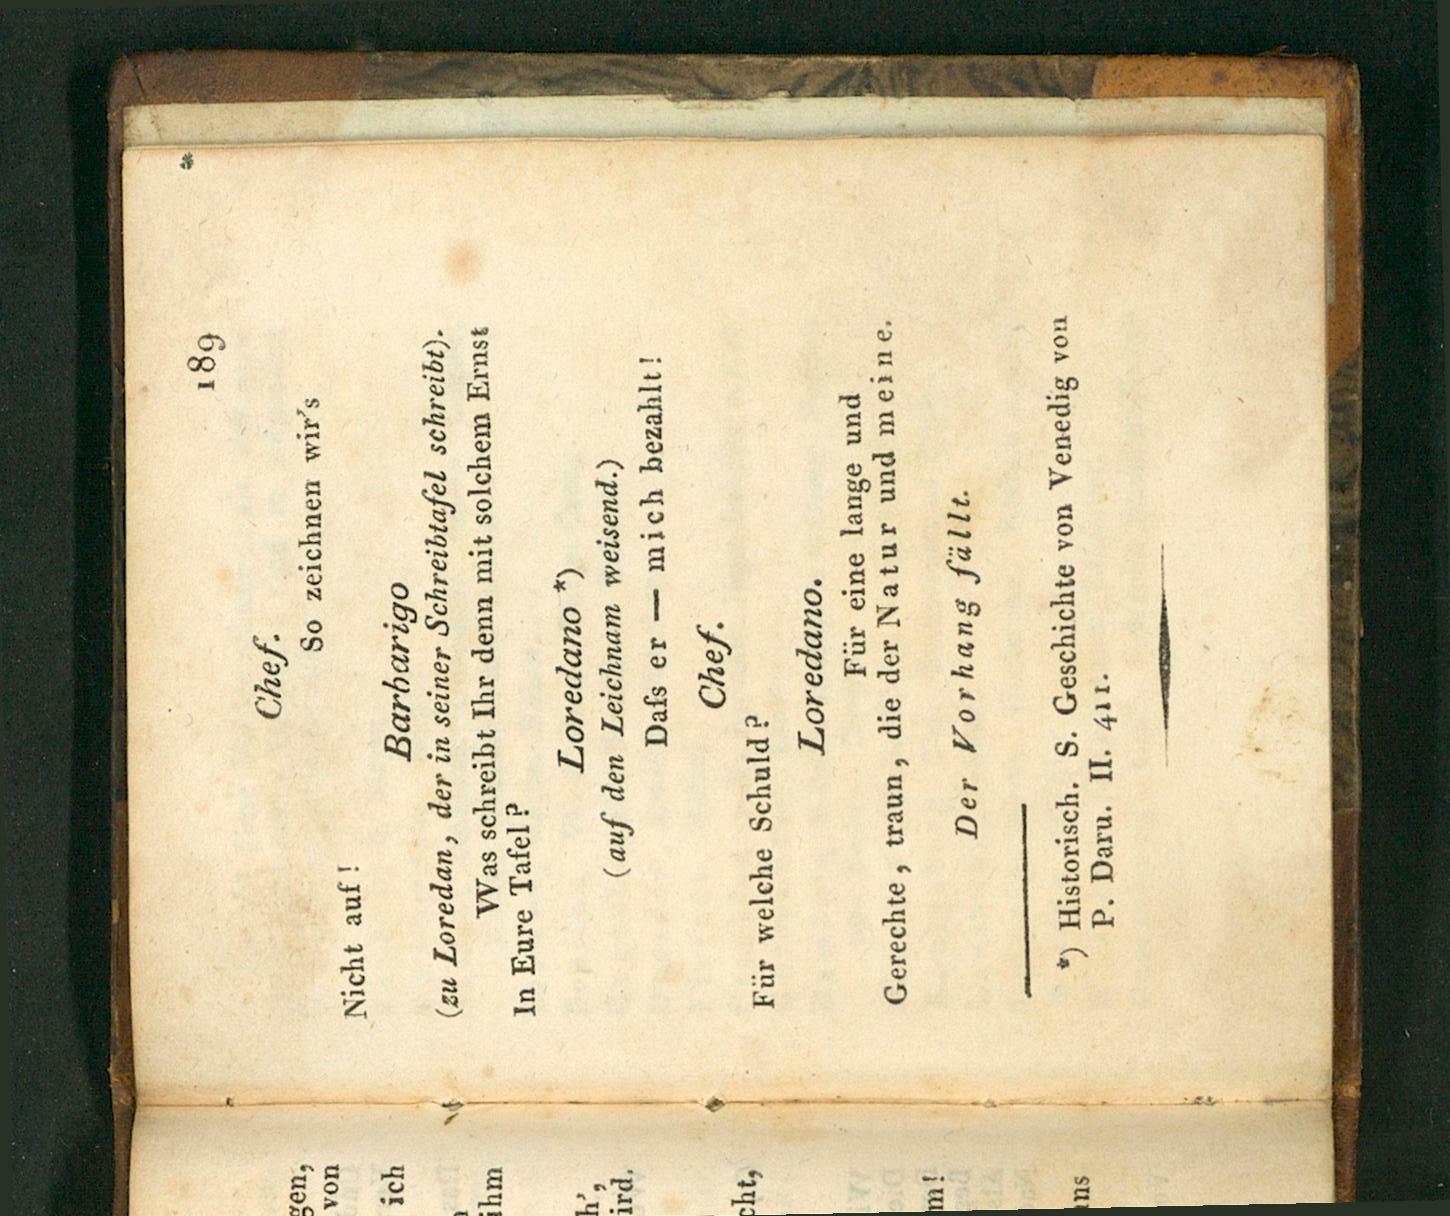 gen,
von
ich
ihm
h',
ird.
cht,
m!
ns
189
Chef.
So zeichnen wir's
Nicht auf!
Barbarigo
(zu Loredan, der in seiner Schreibtafel schreibt).
Was schreibt Ihr denn mit solchem Ernst
In Eure Tafel?
Loredano *)
(auf den Leichnam weisend.)
Daſs er — mich bezahlt!
Chef.
Für welche Schuld?
Loredano.
Für eine lange und
Gerechte, traun, die der Natur und meine.
Der Vorhang fällt.
*) Historisch. S. Geschichte von Venedig von
P. Daru. II. 411.